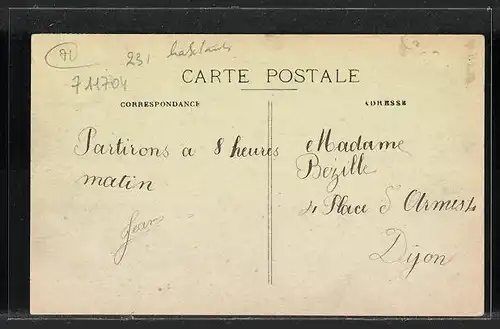 71
231
711704
CARTE POSTALE
CORRESPONDANCE
ADRESSE
Partirons a 8 heures
matin
Jean
Madame
Bézille
4 Place d'Armes 4
Dijon